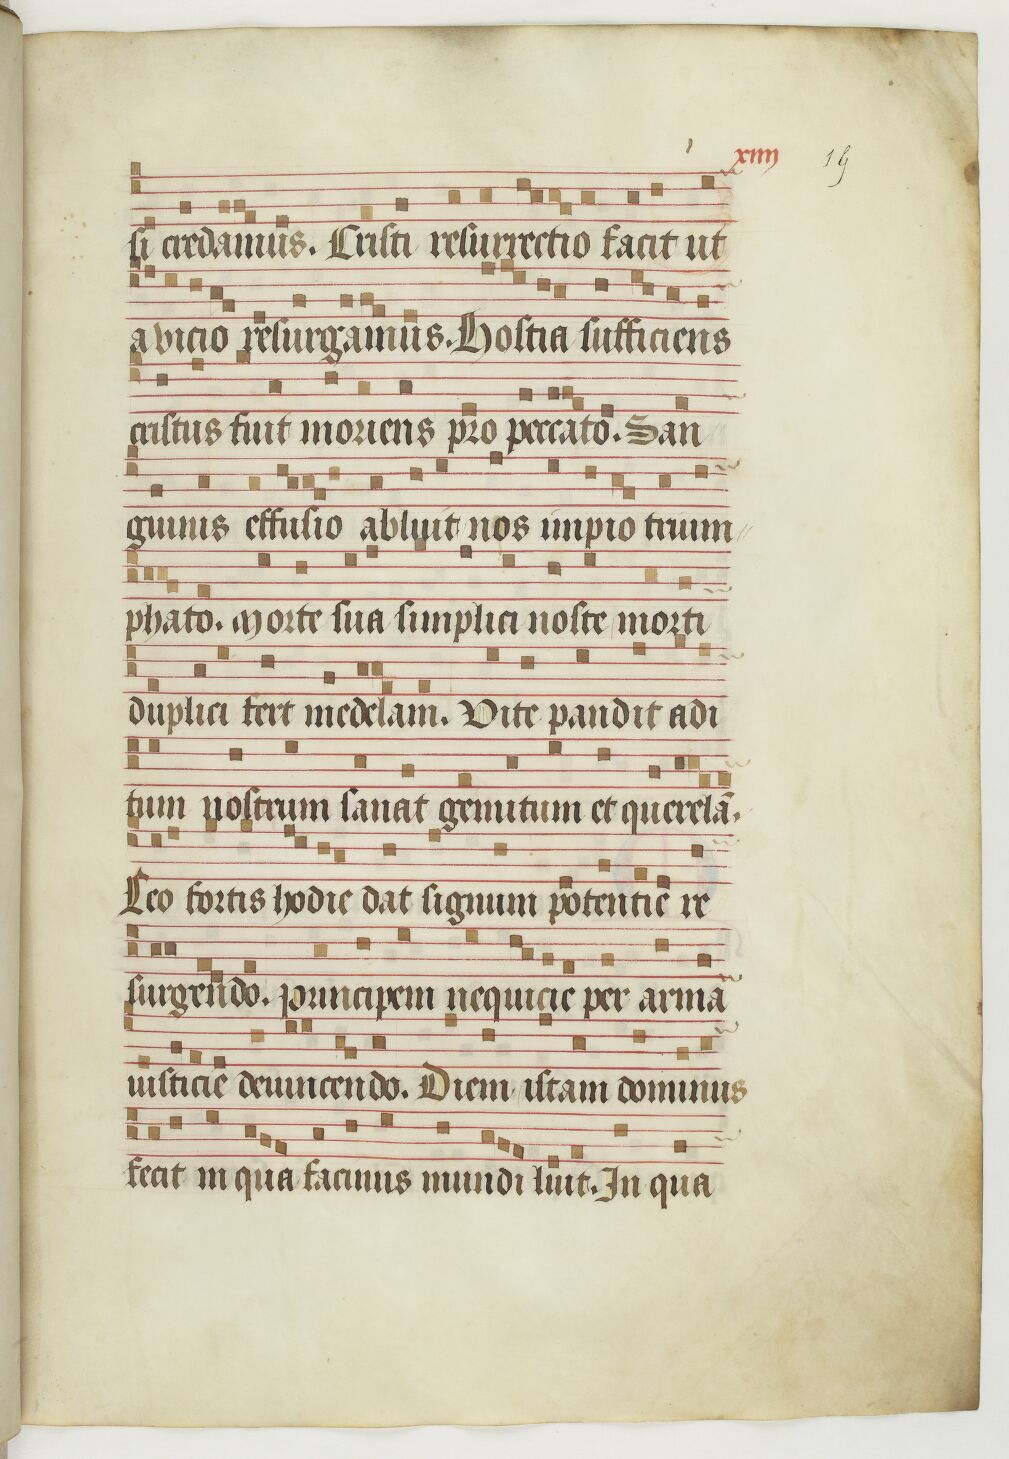 xiiij 15
si credamus. Cristi resurrectio facit ut
a vicio resurgamus. Hostia sufficiens
cristus fuit moriens pro peccato. San
guinis effusio abluit nos impio trium
phato. Morte sua simplici noste morti
duplici fert medelam. Vite pandit adi
tum nostrum sanat gemitum et querelā.
Leo fortis hodie dat signum potentie re
surgendo. principem nequicie per arma
iusticie devincendo. Diem istam dominus
fecit in qua facinus mundi luit. In qua